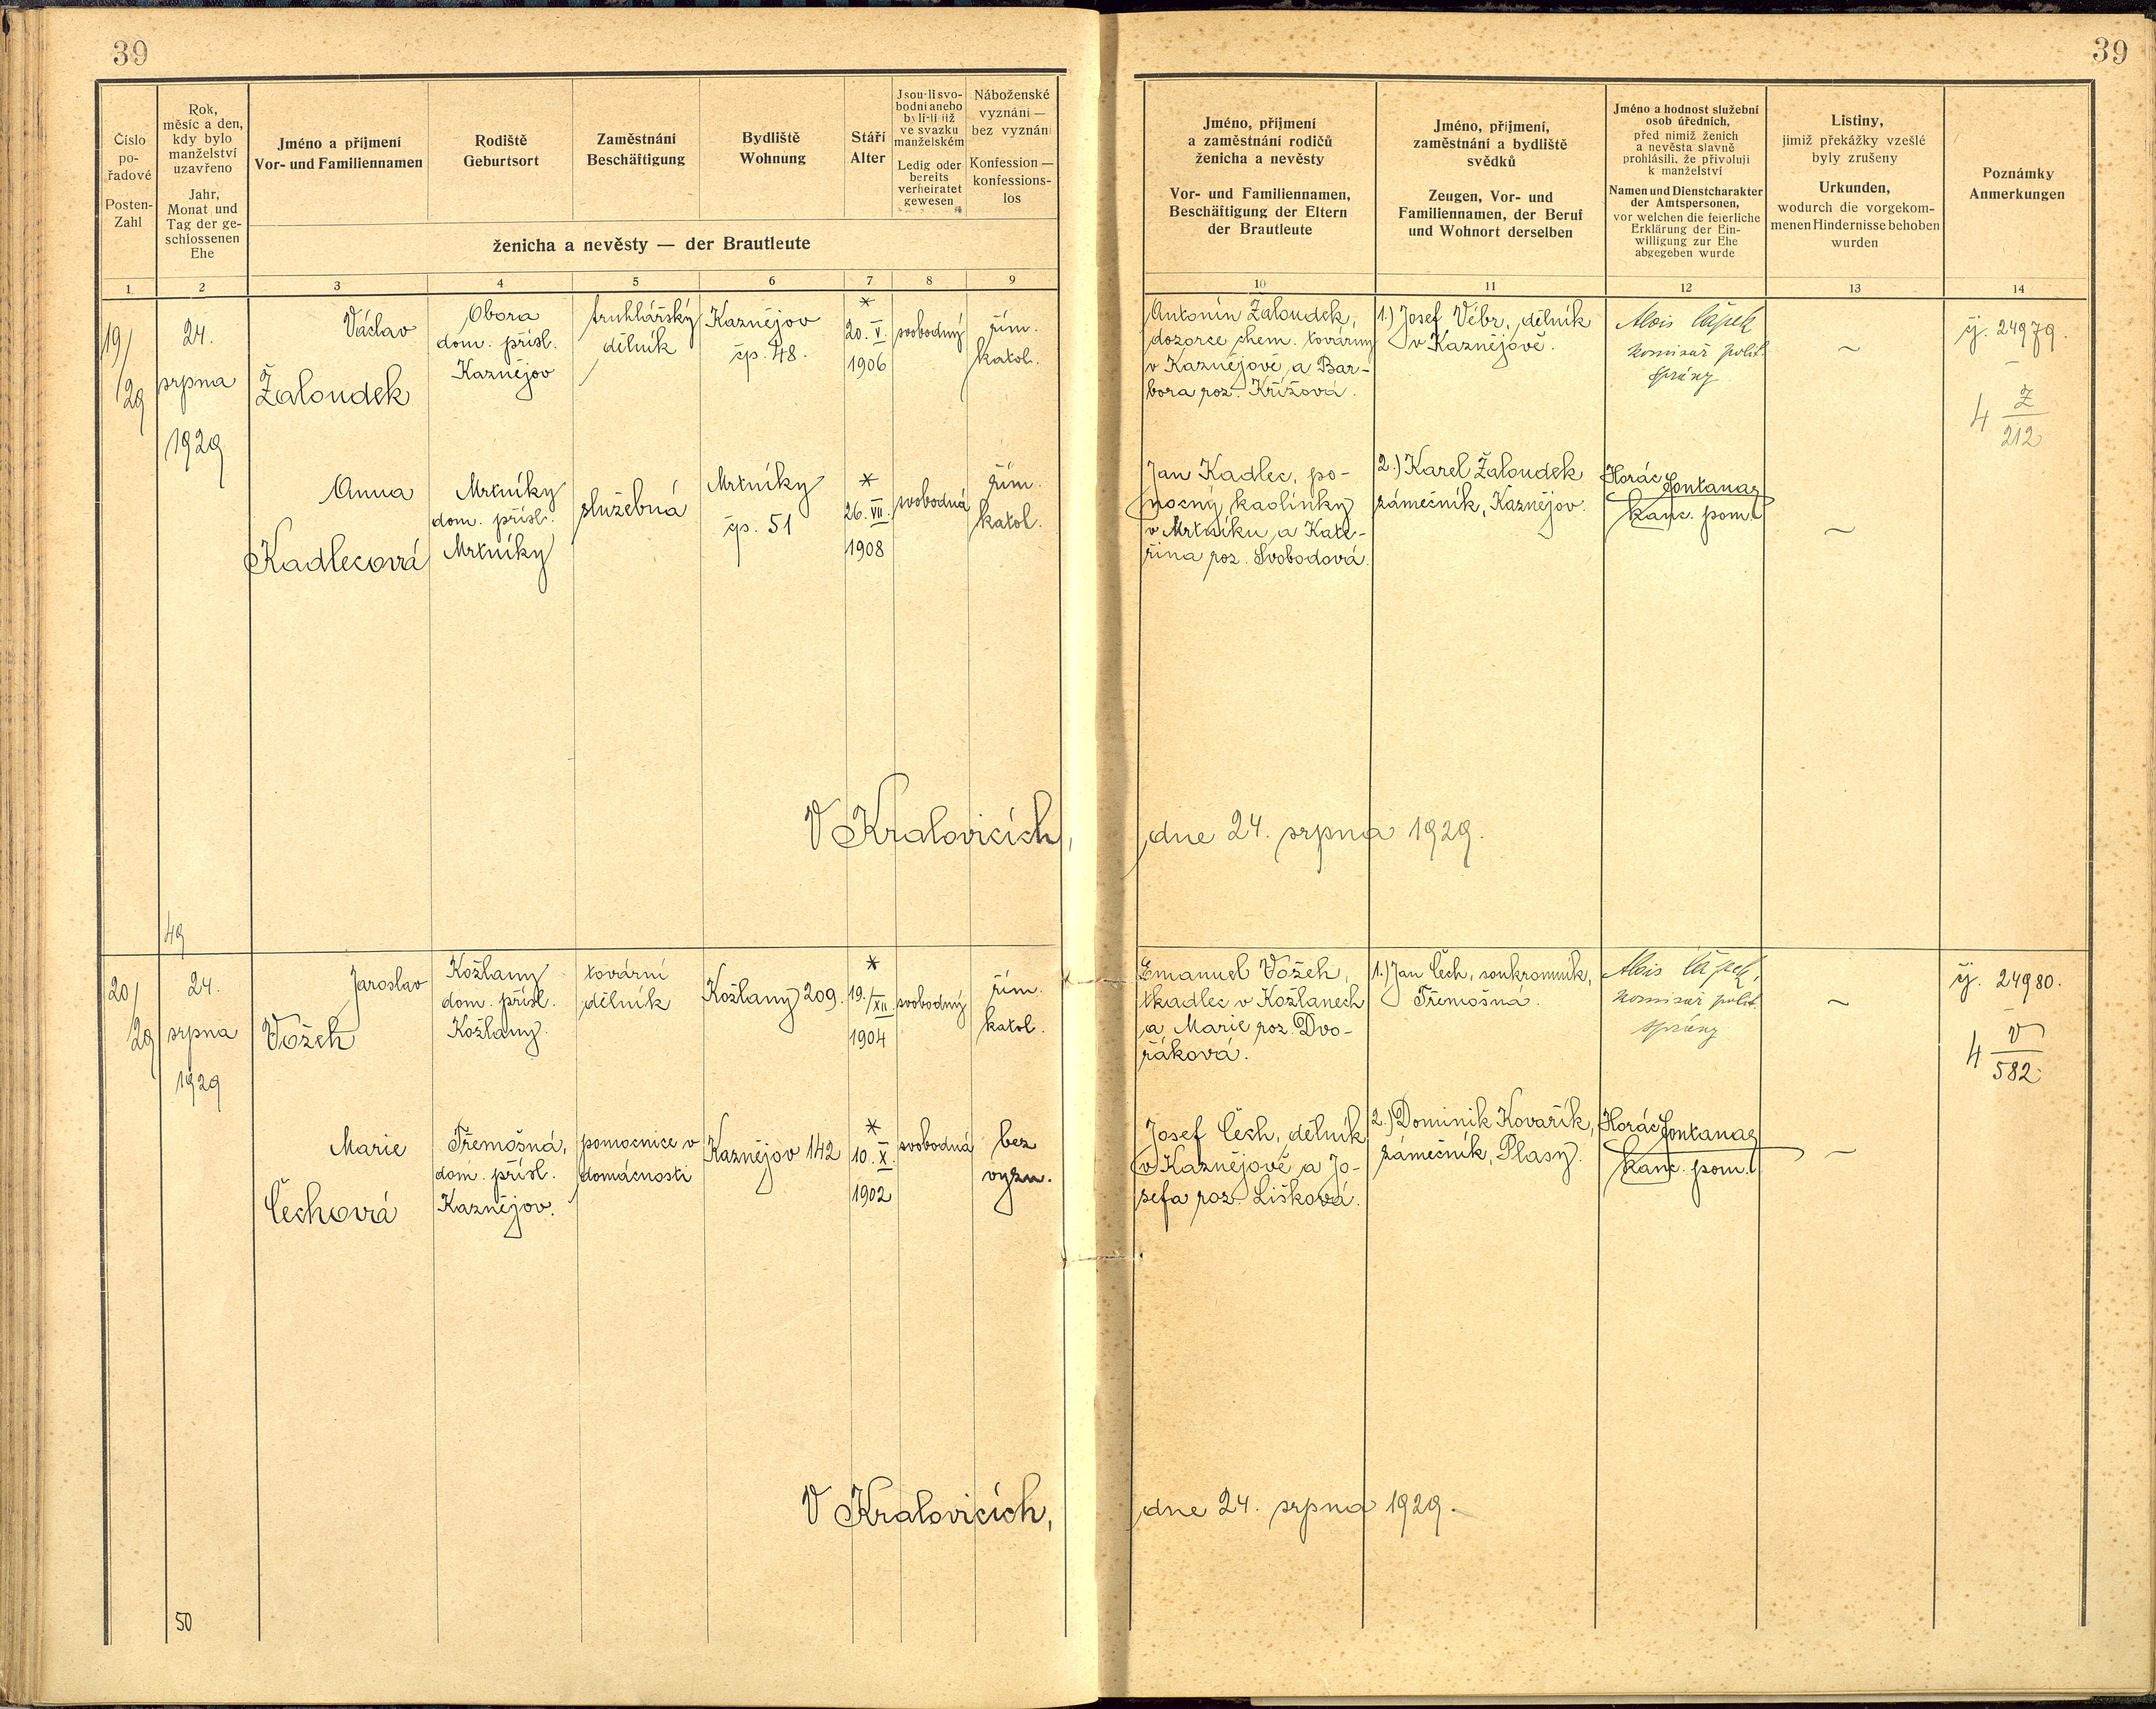 39
39
Číslo
po-
řadové
Posten-
Zahl
Rok,
měsíc a den,
kdy bylo
manželství
uzavřeno
Jahr,
Monat und
Tag der ge-
schlossenen
Ehe
Jméno a příjmení
Vor- und Familiennamen
Rodiště
Geburtsort
Zaměstnání
Beschäftigung
Bydliště
Wohnung
Stáří
Alter
Jsou-li svo-
bodni anebo
byli-li již
ve svazku
manželském
Ledig oder
bereits
verheiratet
gewesen
Náboženské
vyznání —
bez vyznání
Konfession —
konfessions-
los
ženicha a nevěsty — der Brautleute
Jméno, příjmení
a zaměstnání rodičů
ženicha a nevěsty
Vor- und Familiennamen,
Beschäftigung der Eltern
der Brautleute
Jméno, příjmení,
zaměstnání a bydliště
svědků
Zeugen, Vor- und
Familiennamen, der Beruf
und Wohnort derselben
Jméno a hodnost služební
osob úředních,
před nimiž ženich
a nevěsta slavně
prohlásili, že přivolují
k manželství
Namen und Dienstcharakter
der Amtspersonen,
vor welchen die feierliche
Erklärung der Ein-
willigung zur Ehe
abgegeben wurde
Listiny,
jimiž překážky vzešlé
byly zrušeny
Urkunden,
wodurch die vorgekom-
menen Hindernisse behoben
wurden
Poznámky
Anmerkungen
1 2 3 4 5 6 7 8 9 10 11 12 13 14
19/
/29
24.
srpna
1929
Václav
Žaloudek
Obora
dom. přísl.
Kaznějov
truhlářský
dělník
Kaznějov
čp. 48.
*
20. V.
1906
svobodný
řím.
katol.
Antonín Žaloudek,
dozorce chem. továrny
v Kaznějově a Bar-
bora roz. Křížová.
1.) Josef Vébr, dělník
v Kaznějově.
Alois Čapek
komisař polit.
správy
~
čj. 24979.
—
4 Z
212
Anna
Kadlecová
Mrtníky
dom. přísl.
Mrtníky
služebná
Mrtníky
čp. 51
*
26. VII.
1908
svobodná
řím.
katol.
Jan Kadlec, po-
mocný kaolinky
v Mrtníku a Kate-
řina roz. Svobodová.
2.) Karel Žaloudek
zámečník, Kaznějov.
Horác Fontanaz
kanc. pom.
~
V Kralovicích,
dne 24. srpna 1929.
49
20/
29
24.
srpna
1929
Jaroslav
Vožeh
Kožlany
dom. přísl.
Kožlany.
tovární
dělník
Kožlany 209.
*
19./XII.
1904
svobodný
řím.
katol.
Emanuel Vožeh,
tkadlec v Kožlanech
a Marie roz. Dvo-
řáková.
1.) Jan Čech, soukromník,
Třemošná.
Alois Čapek,
komisař polit.
správy
~
čj. 24980.
—
4 V
582
Marie
Čechová
Třemošná,
dom. přísl.
Kaznějov.
pomocnice v
domácnosti
Kaznějov 142
*
10. X.
1902
svobodná
bez
vyzn.
Josef Čech, dělník
v Kaznějově a Jo-
sefa roz. Lišková.
2.) Dominik Kovařík,
zámečník, Plasy.
Horác Fontanaz
kanc. pom.
~
V Kralovicích,
dne 24. srpna 1929.
50